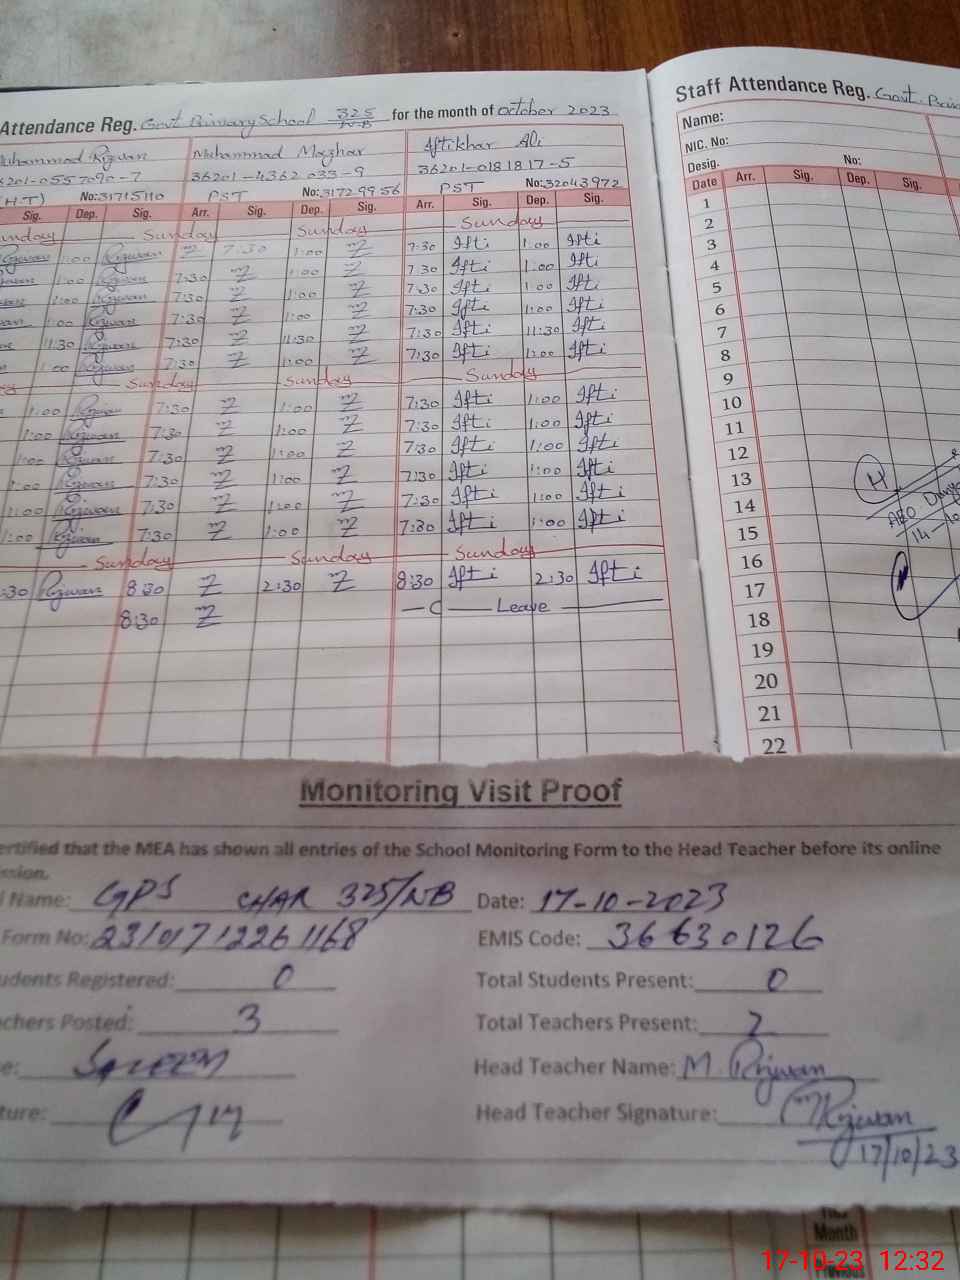 Attendance Reg. Govt Primary School 325/N-B for the month of October 2023
Muhammad Rizwan Muhammad Mazhar Aftikhar Ali
36201-4362033-9 36201-0181817-5
(H.T) No:31715110 PST No:31729956 PST No:32043972
Sig. Dep. Sig. Arr. Sig. Dep. Sig. Arr. Sig. Dep. Sig.
Sunday Sunday Sunday Sunday
Rizwan 1:00 Rizwan 7:30 1:00 7:30 Ifti 1:00 Ifti
1:00 Rizwan 7:30 1:00 7:30 Ifti 1:00 Ifti
1:00 Rizwan 7:30 1:00 7:30 Ifti 1:00 Ifti
1:00 Rizwan 7:30 1:00 7:30 Ifti 1:00 Ifti
11:30 Rizwan 7:30 11:30 7:30 Ifti 11:30 Ifti
1:00 Rizwan 7:30 1:00 7:30 Ifti 1:00 Ifti
Sunday Sunday Sunday
1:00 Rizwan 7:30 1:00 7:30 Ifti 1:00 Ifti
1:00 Rizwan 7:30 1:00 7:30 Ifti 1:00 Ifti
1:00 Rizwan 7:30 1:00 7:30 Ifti 1:00 Ifti
1:00 Rizwan 7:30 1:00 7:30 Ifti 1:00 Ifti
1:00 Rizwan 7:30 1:00 7:30 Ifti 1:00 Ifti
1:00 Rizwan 7:30 1:00 7:30 Ifti 1:00 Ifti
Sunday Sunday Sunday
:30 Rizwan 8:30 2:30 8:30 Ifti 2:30 Ifti
8:30 C Leave
Staff Attendance Reg. Govt.
Name:
NIC. No:
Desig. No:
Date Arr. Sig. Dep. Sig.
1
2
3
4
5
6
7
8
9
10
11
12
13
14
15
16
17
18
19
20
21
22
H
AEO
14
Monitoring Visit Proof
ertified that the MEA has shown all entries of the School Monitoring Form to the Head Teacher before its online
ssion.
l Name: GPS CHAR 325/NB Date: 17-10-2023
Form No: EMIS Code: 36630126
udents Registered: 0 Total Students Present: 0
chers Posted: 3 Total Teachers Present: 2
e: SALEEM Head Teacher Name: M. Rizwan
ture: Head Teacher Signature: Rizwan
17/10/23
Month
Previous
17-10-23 12:32